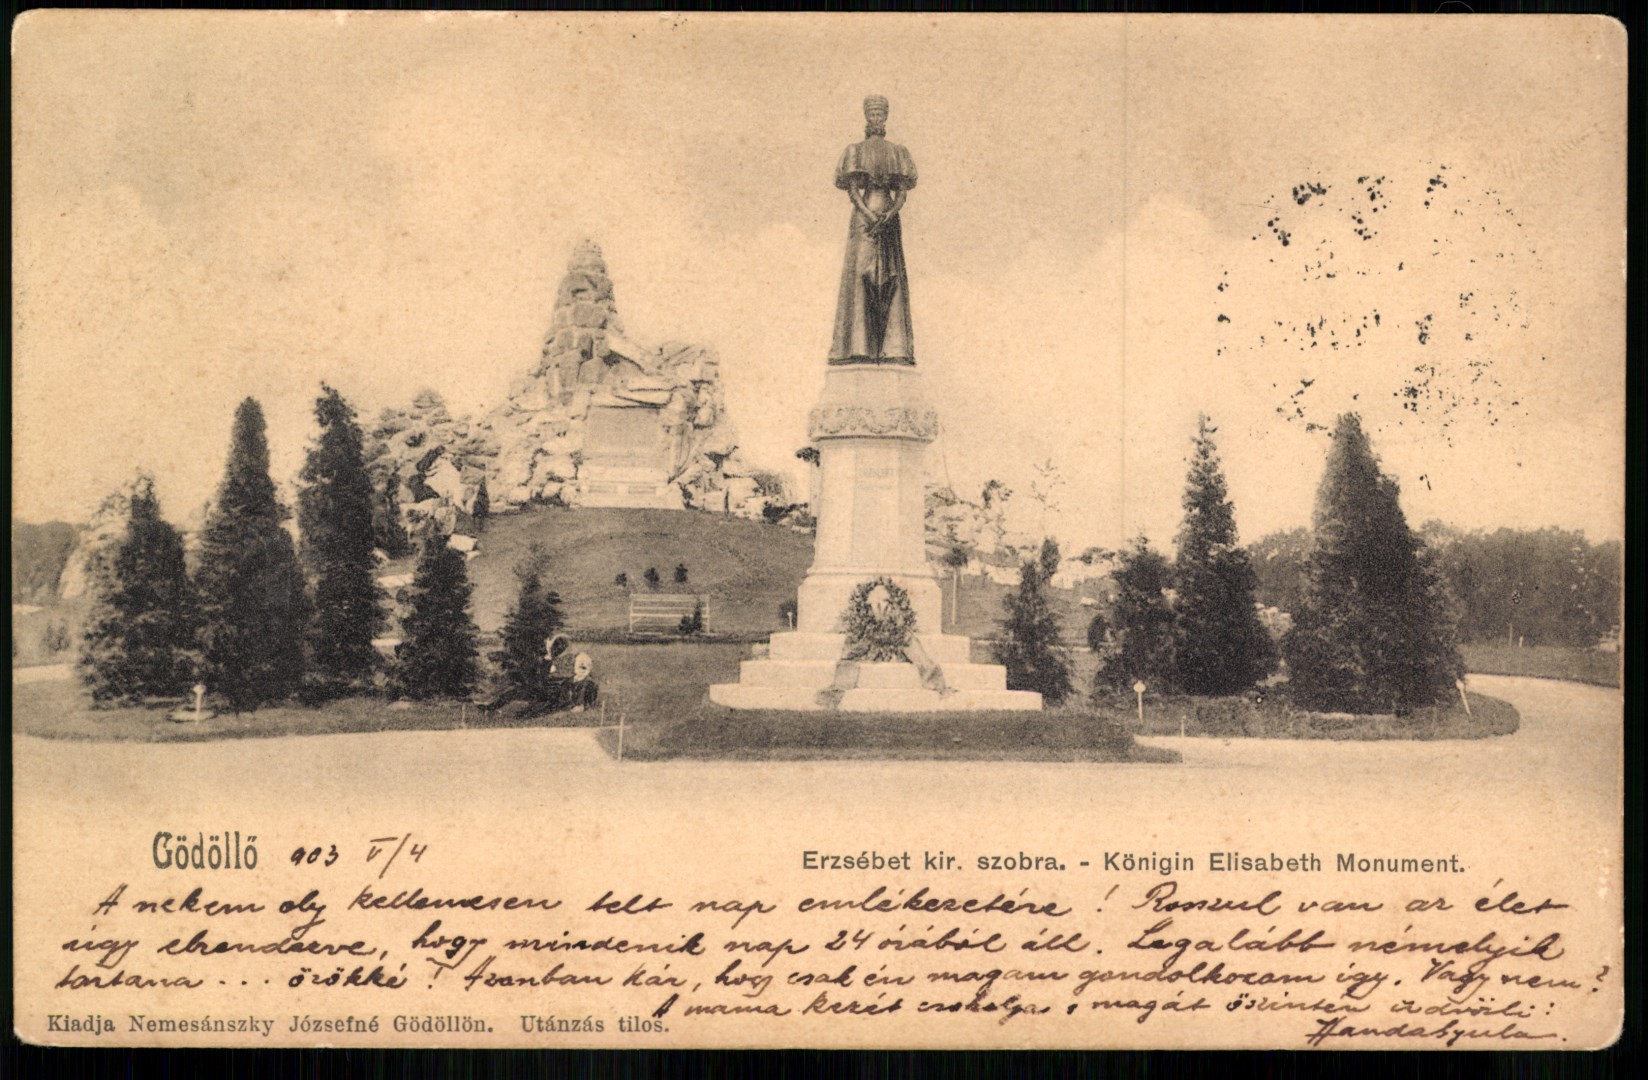 Gödöllő 903 V/4
Erzsébet kir. szobra. - Königin Elisabeth Monument.
A nekem oly kellemesen telt nap emlékezetére! Rosszul van az élet
úgy elrendezve, hogy mindenik nap 24 órából áll. Legalább némelyik
tartana ... örökké! Azonban kár, hogy csak én magam gondolkozom így. Vagy nem?
A mama kezét csókolja s magát őszintén üdvözli:
Kiadja Nemesánszky Józsefné Gödöllőn. Utánzás tilos.